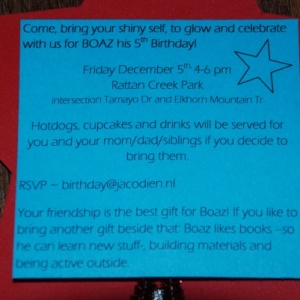 Come, bring your shiny self, to glow and celebrate
with us for BOAZ his 5th Birthday!
Friday December 5th 4-6 pm
Rattan Creek Park
intersection Tamayo Dr and Elkhorn Mountain Tr.
Hotdogs, cupcakes and drinks will be served for
you and your mom/dad/siblings if you decide to
bring them.
RSVP ~ birthday@jacodien.nl
Your friendship is the best gift for Boaz! If you like to
bring another gift beside that: Boaz likes books -so
he can learn new stuff-, building materials and
being active outside.